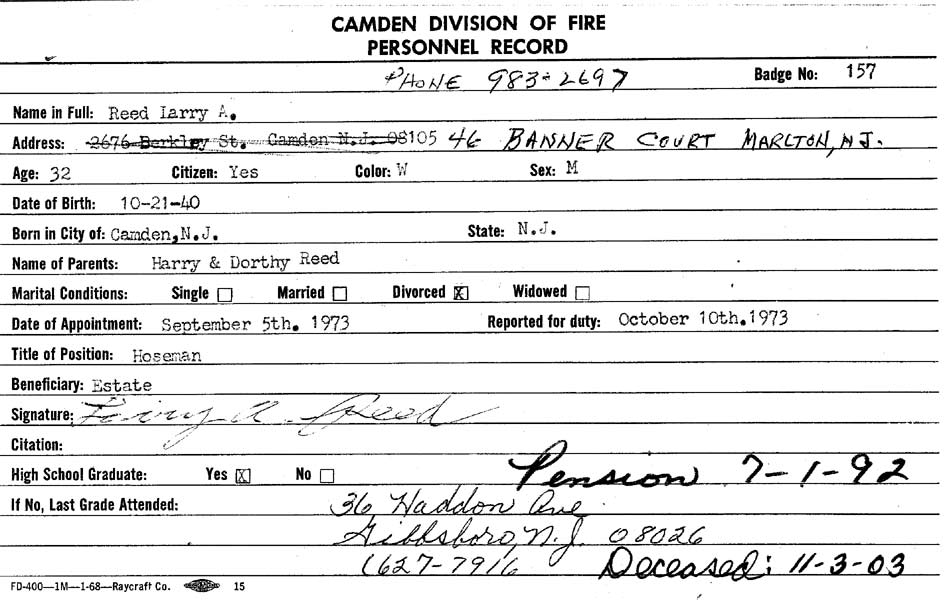 CAMDEN DIVISION OF FIRE
PERSONNEL RECORD
PHONE 983-2697 Badge No: 157
Name in Full: Reed Larry A.
Address: 2676 Berkley St. Camden N.J. 08105 46 BANNER COURT MARLTON, NJ.
Age: 32 Citizen: Yes Color: W Sex: M
Date of Birth: 10-21-40
Born in City of: Camden,N.J. State: N.J.
Name of Parents: Harry & Dorthy Reed
Marital Conditions: Single ☐ Married ☐ Divorced ☒ Widowed ☐
Date of Appointment: September 5th. 1973 Reported for duty: October 10th.1973
Title of Position: Hoseman
Beneficiary: Estate
Signature: Larry A Reed
Citation:
High School Graduate: Yes ☒ No ☐ Pension 7-1-92
If No, Last Grade Attended: 36 Haddon Ave
Gibbsboro, N.J. 08026
(627-7916 Deceased: 11-3-03
FD-400—1M—1-68—Raycraft Co. 15